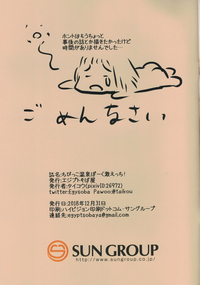 ホントはもうちょっと
事後の話とか描きたかったけど
時間がありませんでした…
ごめんなさい
誌名:ちびっこ温泉ぱーく激えっち!
発行:エジプトそば屋
発行者:タイコウ(pixivID26972)
twitter:Egysoba Pawoo:@taikou
発行日:2018年12月31日
印刷:ハイビジョン印刷ドットコム・サングループ
連絡先:egyptsobaya@gmail.com
SUN GROUP
http://www.sungroup.co.jp/